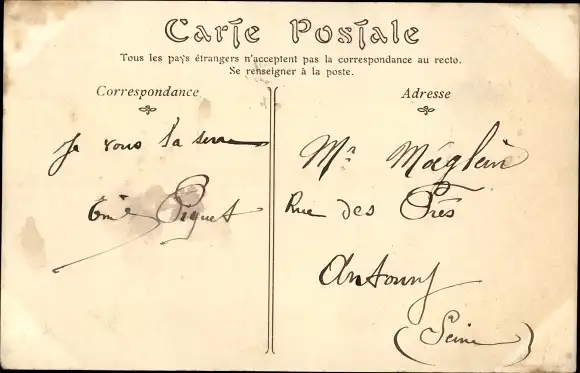 Carte Postale
Tous les pays étrangers n'acceptent pas la correspondance au recto.
Se renseigner à la poste.
Correspondance
Je vous la serre
Piquet
Adresse
Mr Moeglein
Rue des Prés
Antony
(Seine)